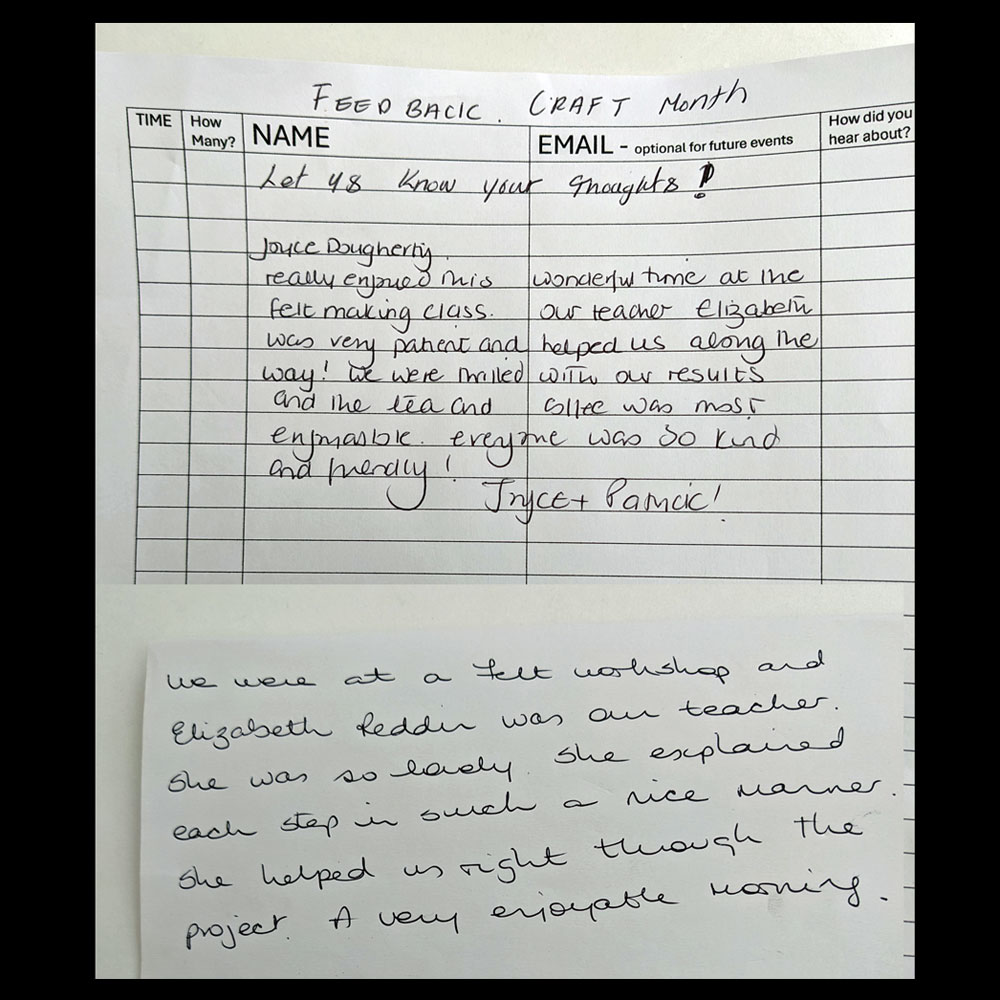 FEEDBACK. CRAFT Month
TIME How Many? NAME EMAIL - optional for future events How did you hear about?
Let us know your thoughts!
Joyce Dougherty.
really enjoyed this wonderful time at the
felt making class. our teacher Elizabeth
was very patient and helped us along the
way! We were thrilled with our results
and the tea and coffee was most
enjoyable. everyone was so kind
and friendly!
Joyce + Patricic!
we were at a felt workshop and
Elizabeth Reddin was our teacher.
She was so lovely. She explained
each step in such a nice manner.
She helped us right through the
project. A very enjoyable morning.